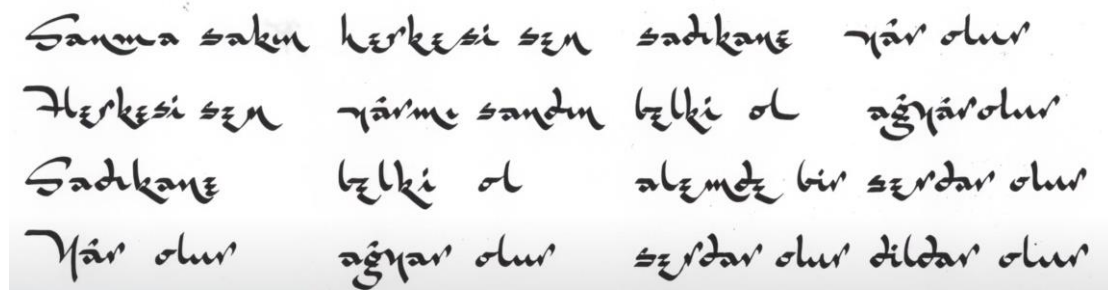 Sanma sakın herkesi sen sadıkane yâr olur
Herkesi sen yârmı sandın belki ol ağyârolur
Sadıkane belki ol alemde bir serdar olur
Yâr olur ağyar olur serdar olur dildar olur